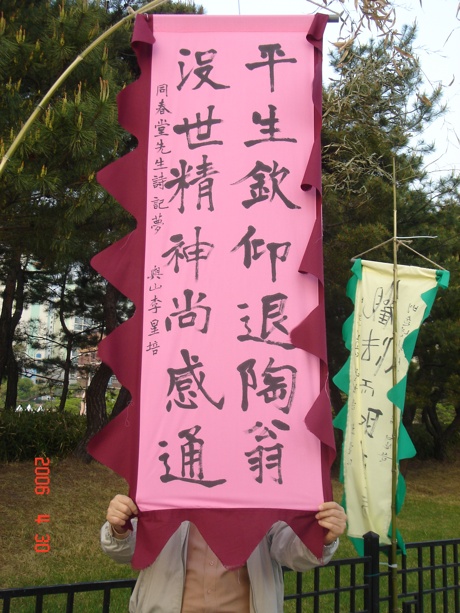 平生欽仰退陶翁
沒世精神尚感通
同春堂先生詩記夢 
李星培
2006 4 30